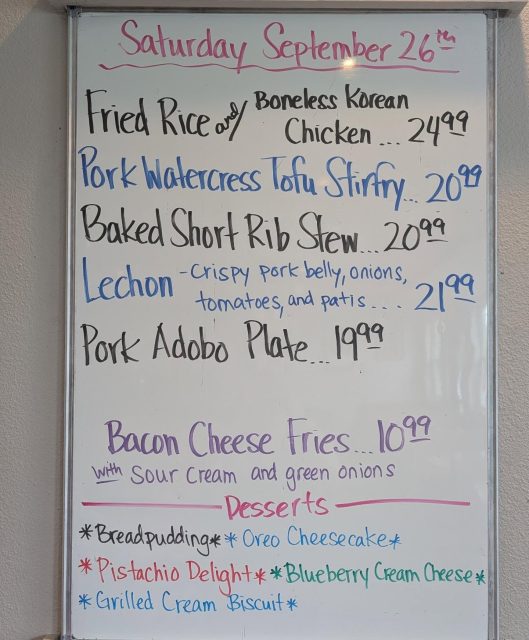 Saturday September 26th
Fried Rice and/ Boneless Korean
Chicken ... 24.99
Pork Watercress Tofu Stirfry... 20.99
Baked Short Rib Stew... 20.99
Lechon - Crispy pork belly, onions,
tomatoes, and patis .... 21.99
Pork Adobo Plate... 19.99
Bacon Cheese Fries... 10.99
with Sour Cream and green onions
Desserts
*Breadpudding* *Oreo Cheesecake*
*Pistachio Delight* *Blueberry Cream Cheese*
*Grilled Cream Biscuit*